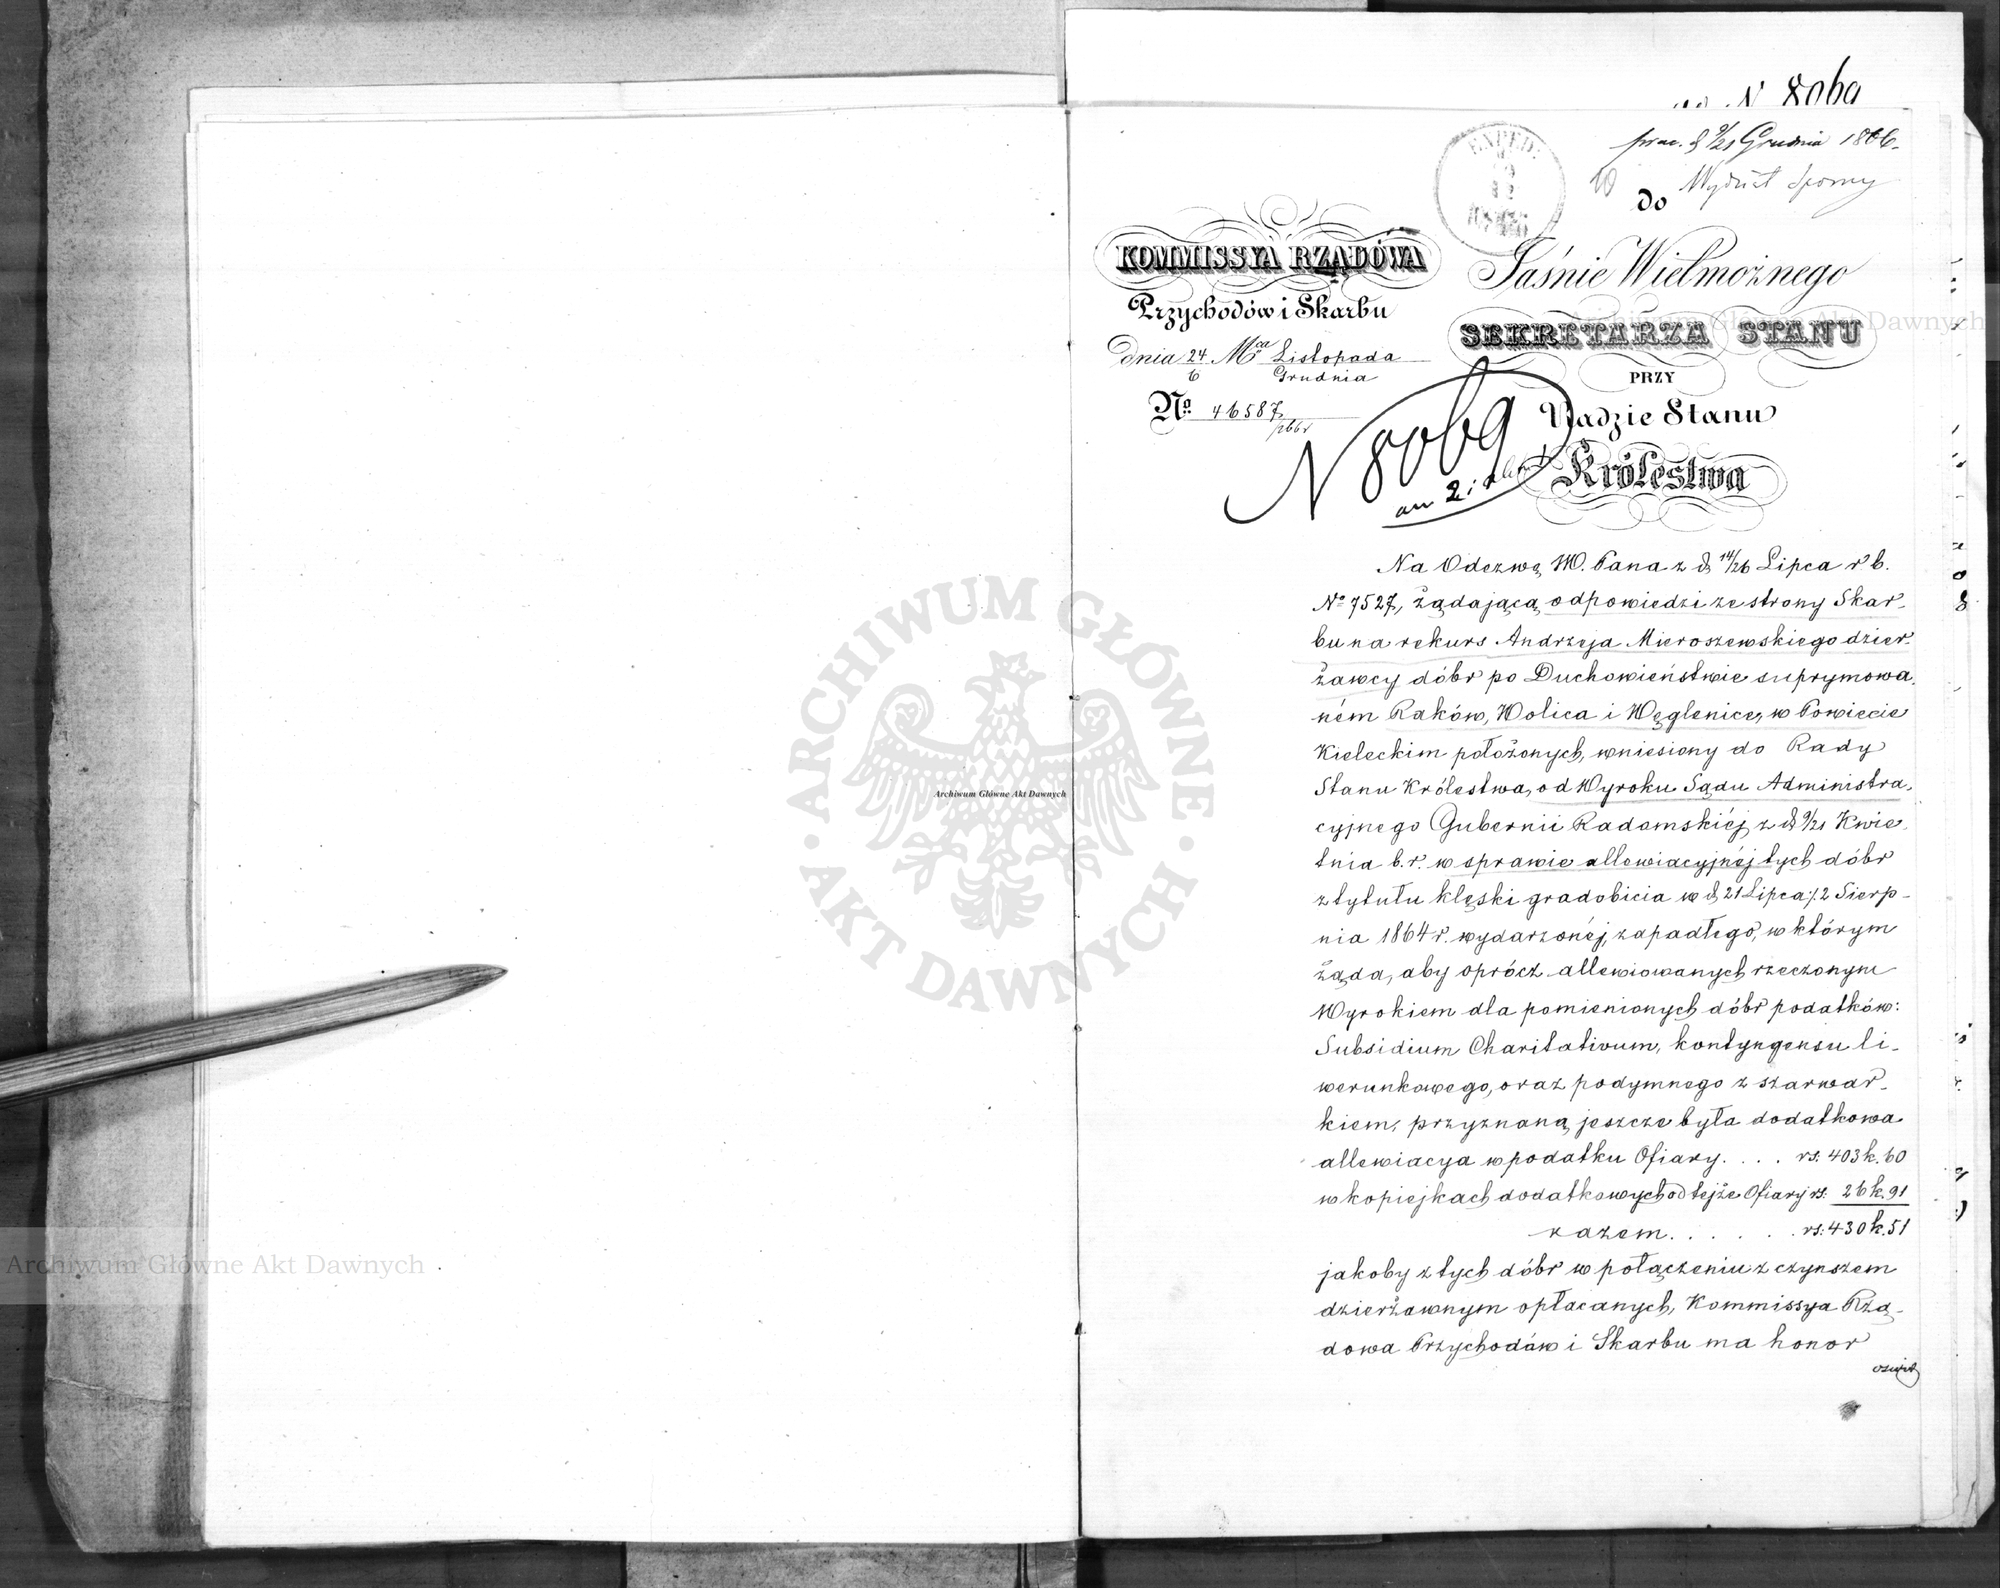 N 8069
prae. d 9/21 Grudnia 1866.
Wydział Sporny
do
EXPED:
KOMMISSYA RZĄDOWA
Przychodów i Skarbu
dnia 24/6 Mca Listopada/Grudnia
No. 46587
Jaśnie Wielmożnego
SEKRETARZA STANU
PRZY
Radzie Stanu
Królestwa
N 8069
Na Odezwę W. Pana z d 14/26 Lipca r b.
No 7527, żądającą odpowiedzi ze strony Skar-
bu na rekurs Andrzeja Mieroszewskiego dzier-
żawcy dóbr po Duchowieństwie suprymowa-
ném Raków, Wolica i Węglenice, w Powiecie
Kieleckim położonych, wniesiony do Rady
Stanu Królestwa, od Wyroku Sądu Administra-
cyjnego Gubernii Radomskiéj z d 9/21 Kwie-
tnia b. r. w sprawie allewiacyjnéj tych dóbr
z tytułu klęski gradobicia w d 21 Lipca/2 Sierp-
nia 1864 r. wydarzonéj, zapadłego, w którym
żąda, aby oprócz allewiowanych rzeczonym
Wyrokiem dla pomienionych dóbr podatków:
Subsidium Charitativum, kontyngensu li-
werunkowego, oraz podymnego z szarwar-
kiem, przyznaną jeszcze była dodatkowa
allewiacya w podatku Ofiary. . . . rs: 403 k. 60
w kopiejkach dodatkowych od tejże Ofiary rs: 26 k. 91
razem. . . . . . rs: 430 k. 51
jakoby z tych dóbr w połączeniu z czynszem
dzierżawnym opłacanych, Kommissya Rzą-
dowa Przychodów i Skarbu ma honor
ARCHIWUM GŁÓWNE AKT DAWNYCH
Archiwum Główne Akt Dawnych
Archiwum Główne Akt Dawnych
Archiwum Główne Akt Dawnych